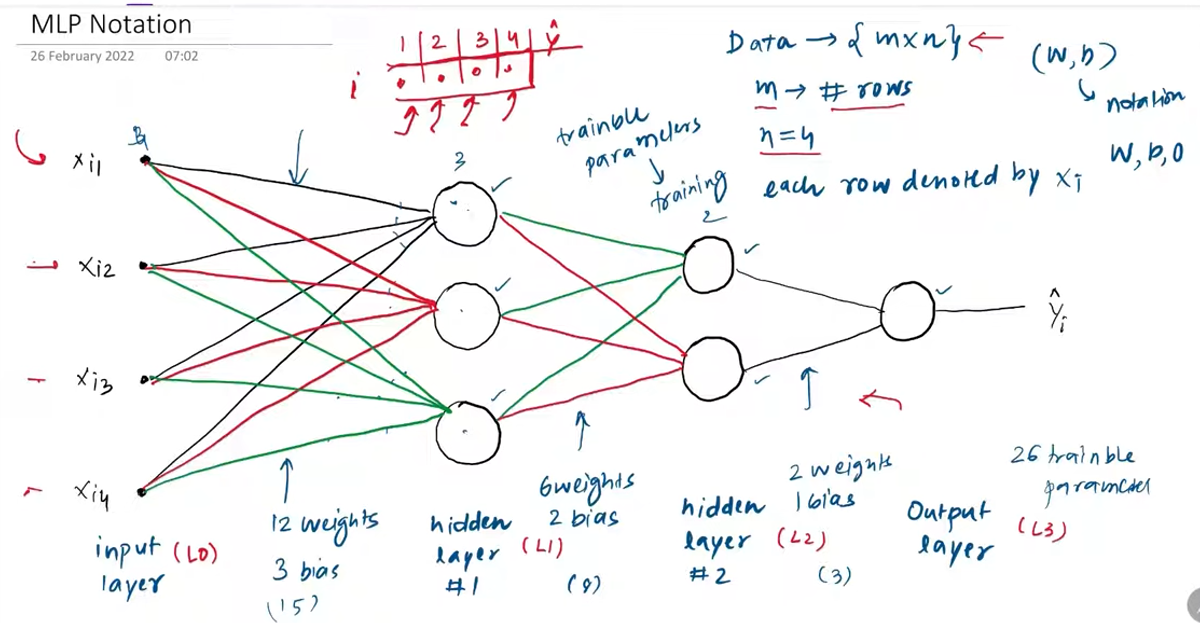 MLP Notation
26 February 2022 07:02
1 2 3 4 ŷ
i
Data → { m x n } ←
m → # rows
n = 4
each row denoted by xi
(W, b)
notation
W, b, O
trainble
parameters
training
xi1
xi2
xi3
xi4
3
2
ŷi
input (L0)
layer
12 weights
3 bias
(15)
hidden
layer (L1)
#1
6 weights
2 bias
(8)
hidden
layer (L2)
#2
2 weights
1 bias
(3)
Output
layer (L3)
26 trainble
parameter